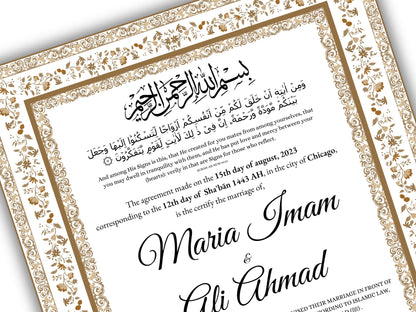 بِسْمِ اللَّهِ الرَّحْمَنِ الرَّحِيمِ
وَمِنْ آيَاتِهِ أَنْ خَلَقَ لَكُم مِّنْ أَنفُسِكُمْ أَزْوَاجًا لِّتَسْكُنُوا إِلَيْهَا وَجَعَلَ
بَيْنَكُم مَّوَدَّةً وَرَحْمَةً، إِنَّ فِي ذَٰلِكَ لَآيَاتٍ لِّقَوْمٍ يَتَفَكَّرُونَ
And among His Signs is this, that He created for you mates from among yourselves, that
you may dwell in tranquility with them, and He has put love and mercy between your
(hearts): verily in that are Signs for those who reflect.
The agreement made on the 15th day of august, 2023
corresponding to the 12th day of Sha'bān 1443 AH, in the city of Chicago,
is the certify the marriage of,
Maria Imam
&
Ali Ahmad
THEIR MARRIAGE IN FRONT OF
ISLAMIC LAW,